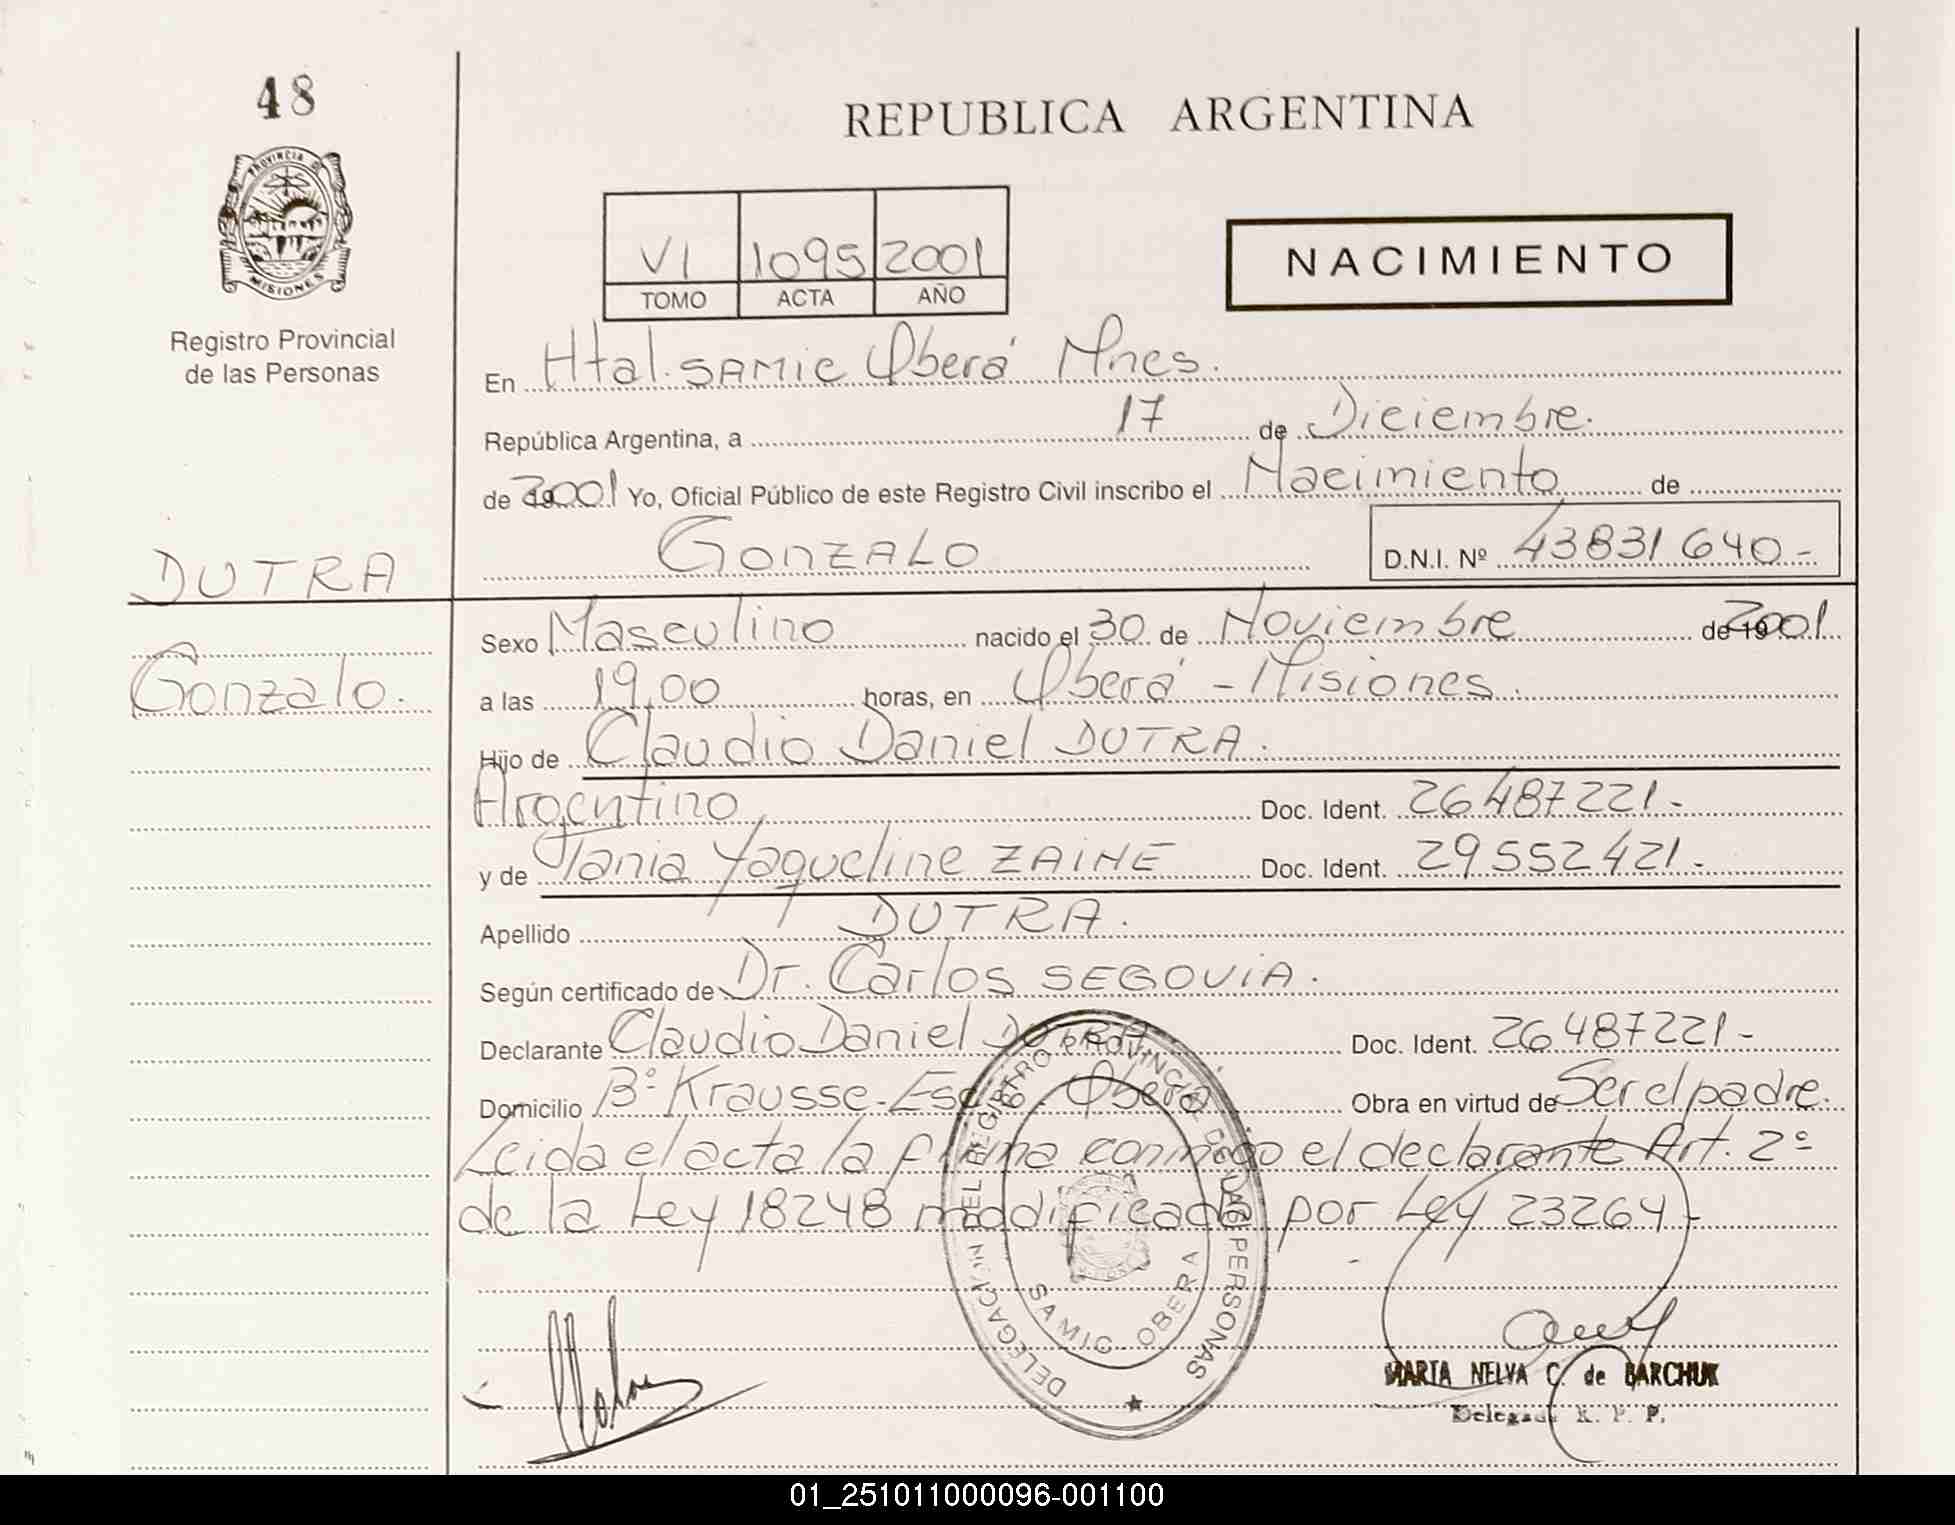 48
PROVINCIA D
MISIONES
Registro Provincial
de las Personas
REPUBLICA ARGENTINA
VI 1095 2001
TOMO ACTA AÑO
NACIMIENTO
En Htal. SAMIC Oberá Mnes.
República Argentina, a 17 de Diciembre.
de 2001 Yo, Oficial Público de este Registro Civil inscribo el Nacimiento de
GONZALO D.N.I. Nº 43831640-
DUTRA
Gonzalo.
Sexo Masculino nacido el 30 de Noviembre de 19 2001
a las 19,00 horas, en Oberá - Misiones.
Hijo de Claudio Daniel DUTRA.
Argentino Doc. Ident. 26487221-
y de Tania Yaqueline ZAINE Doc. Ident. 29552421-
Apellido DUTRA.
Según certificado de Dr. Carlos SEGOVIA.
Declarante Claudio Daniel DUTRA Doc. Ident. 26487221-
Domicilio Bº Krausse- Oberá Obra en virtud de Ser el padre.
Leida el acta la firma conmigo el declarante Art. 2º
de la Ley 18248 modificada por Ley 23264-
DELEGACION DEL REGISTRO PROVINCIAL DE LAS PERSONAS
SAMIC - OBERA
MARIA NELVA C. de BARCHUK
Delegada R. P. P.
01_251011000096-001100